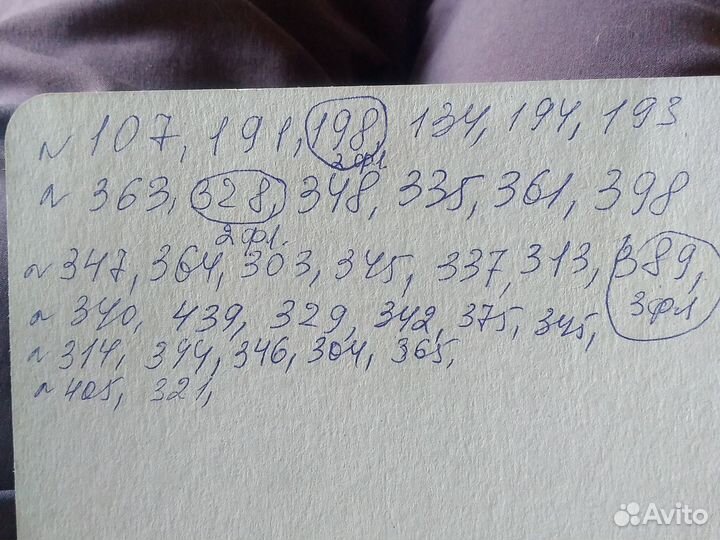 ~ 107, 191, 198 134, 194, 193.
2 фл
~ 363, 328, 348, 335, 361, 398
2 фл.
~ 347, 364, 303, 345, 337, 313, 389,
~ 340, 439, 329, 342, 375, 345, 3 фл
~ 314, 344, 346, 304, 365,
~ 405, 321,
Avito